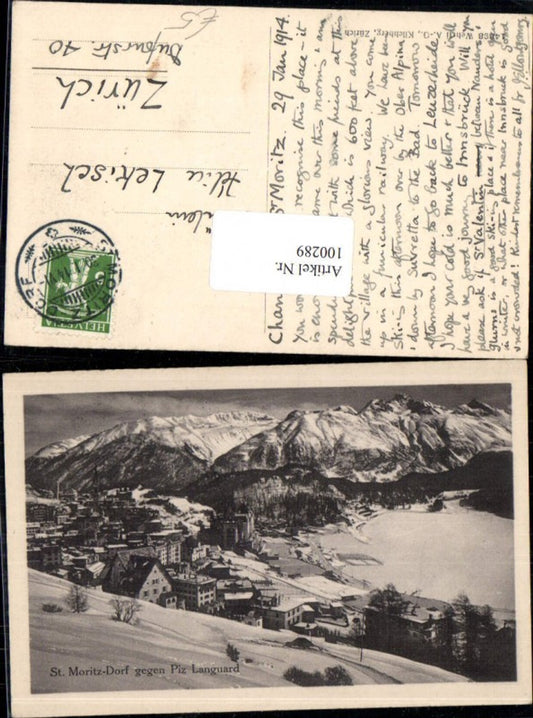 £5
Fräulein
Alice
Zürich
Dufourstr. 70
HELVETIA
ST. MORITZ DORF
Artikel Nr.
100289
Kilchberg, Zürich
St Moritz. 29 Jan 1914.
You recognise this place – it
is came over this morning & am
spending with some friends at this
delightful which is 600 feet above
the village with a glorious view. You come
up in a funicular railway. We have been
Ski-ing this afternoon over by the Ober Alpina
& down by Suvretta to the Bad. Tomorrow
afternoon I hope to go back to Lenzerheide
I hope your cold is much better & that you will
have a very good journey to Innsbruck. Will you
please ask if St. Valentin between Nauders &
Glurns is a good ski-ing place & if there is a hotel open
in winter, or what other place near Innsbruck is good
& not crowded! Kindest remembrances to all
St. Moritz-Dorf gegen Piz Languard